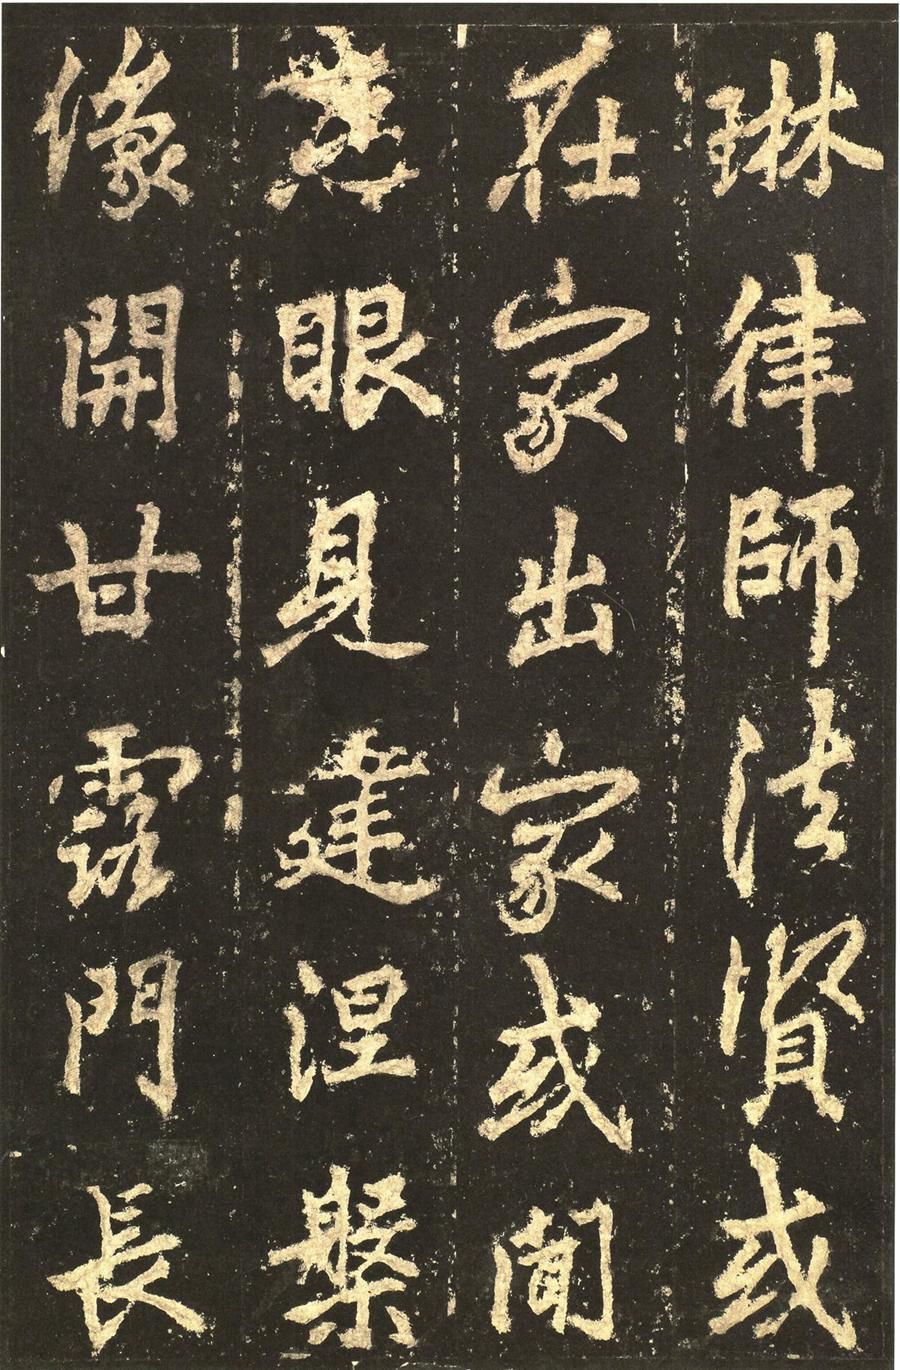 琳律師法賢或
在家出家或聞
慧眼見建涅槃
像開甘露門長